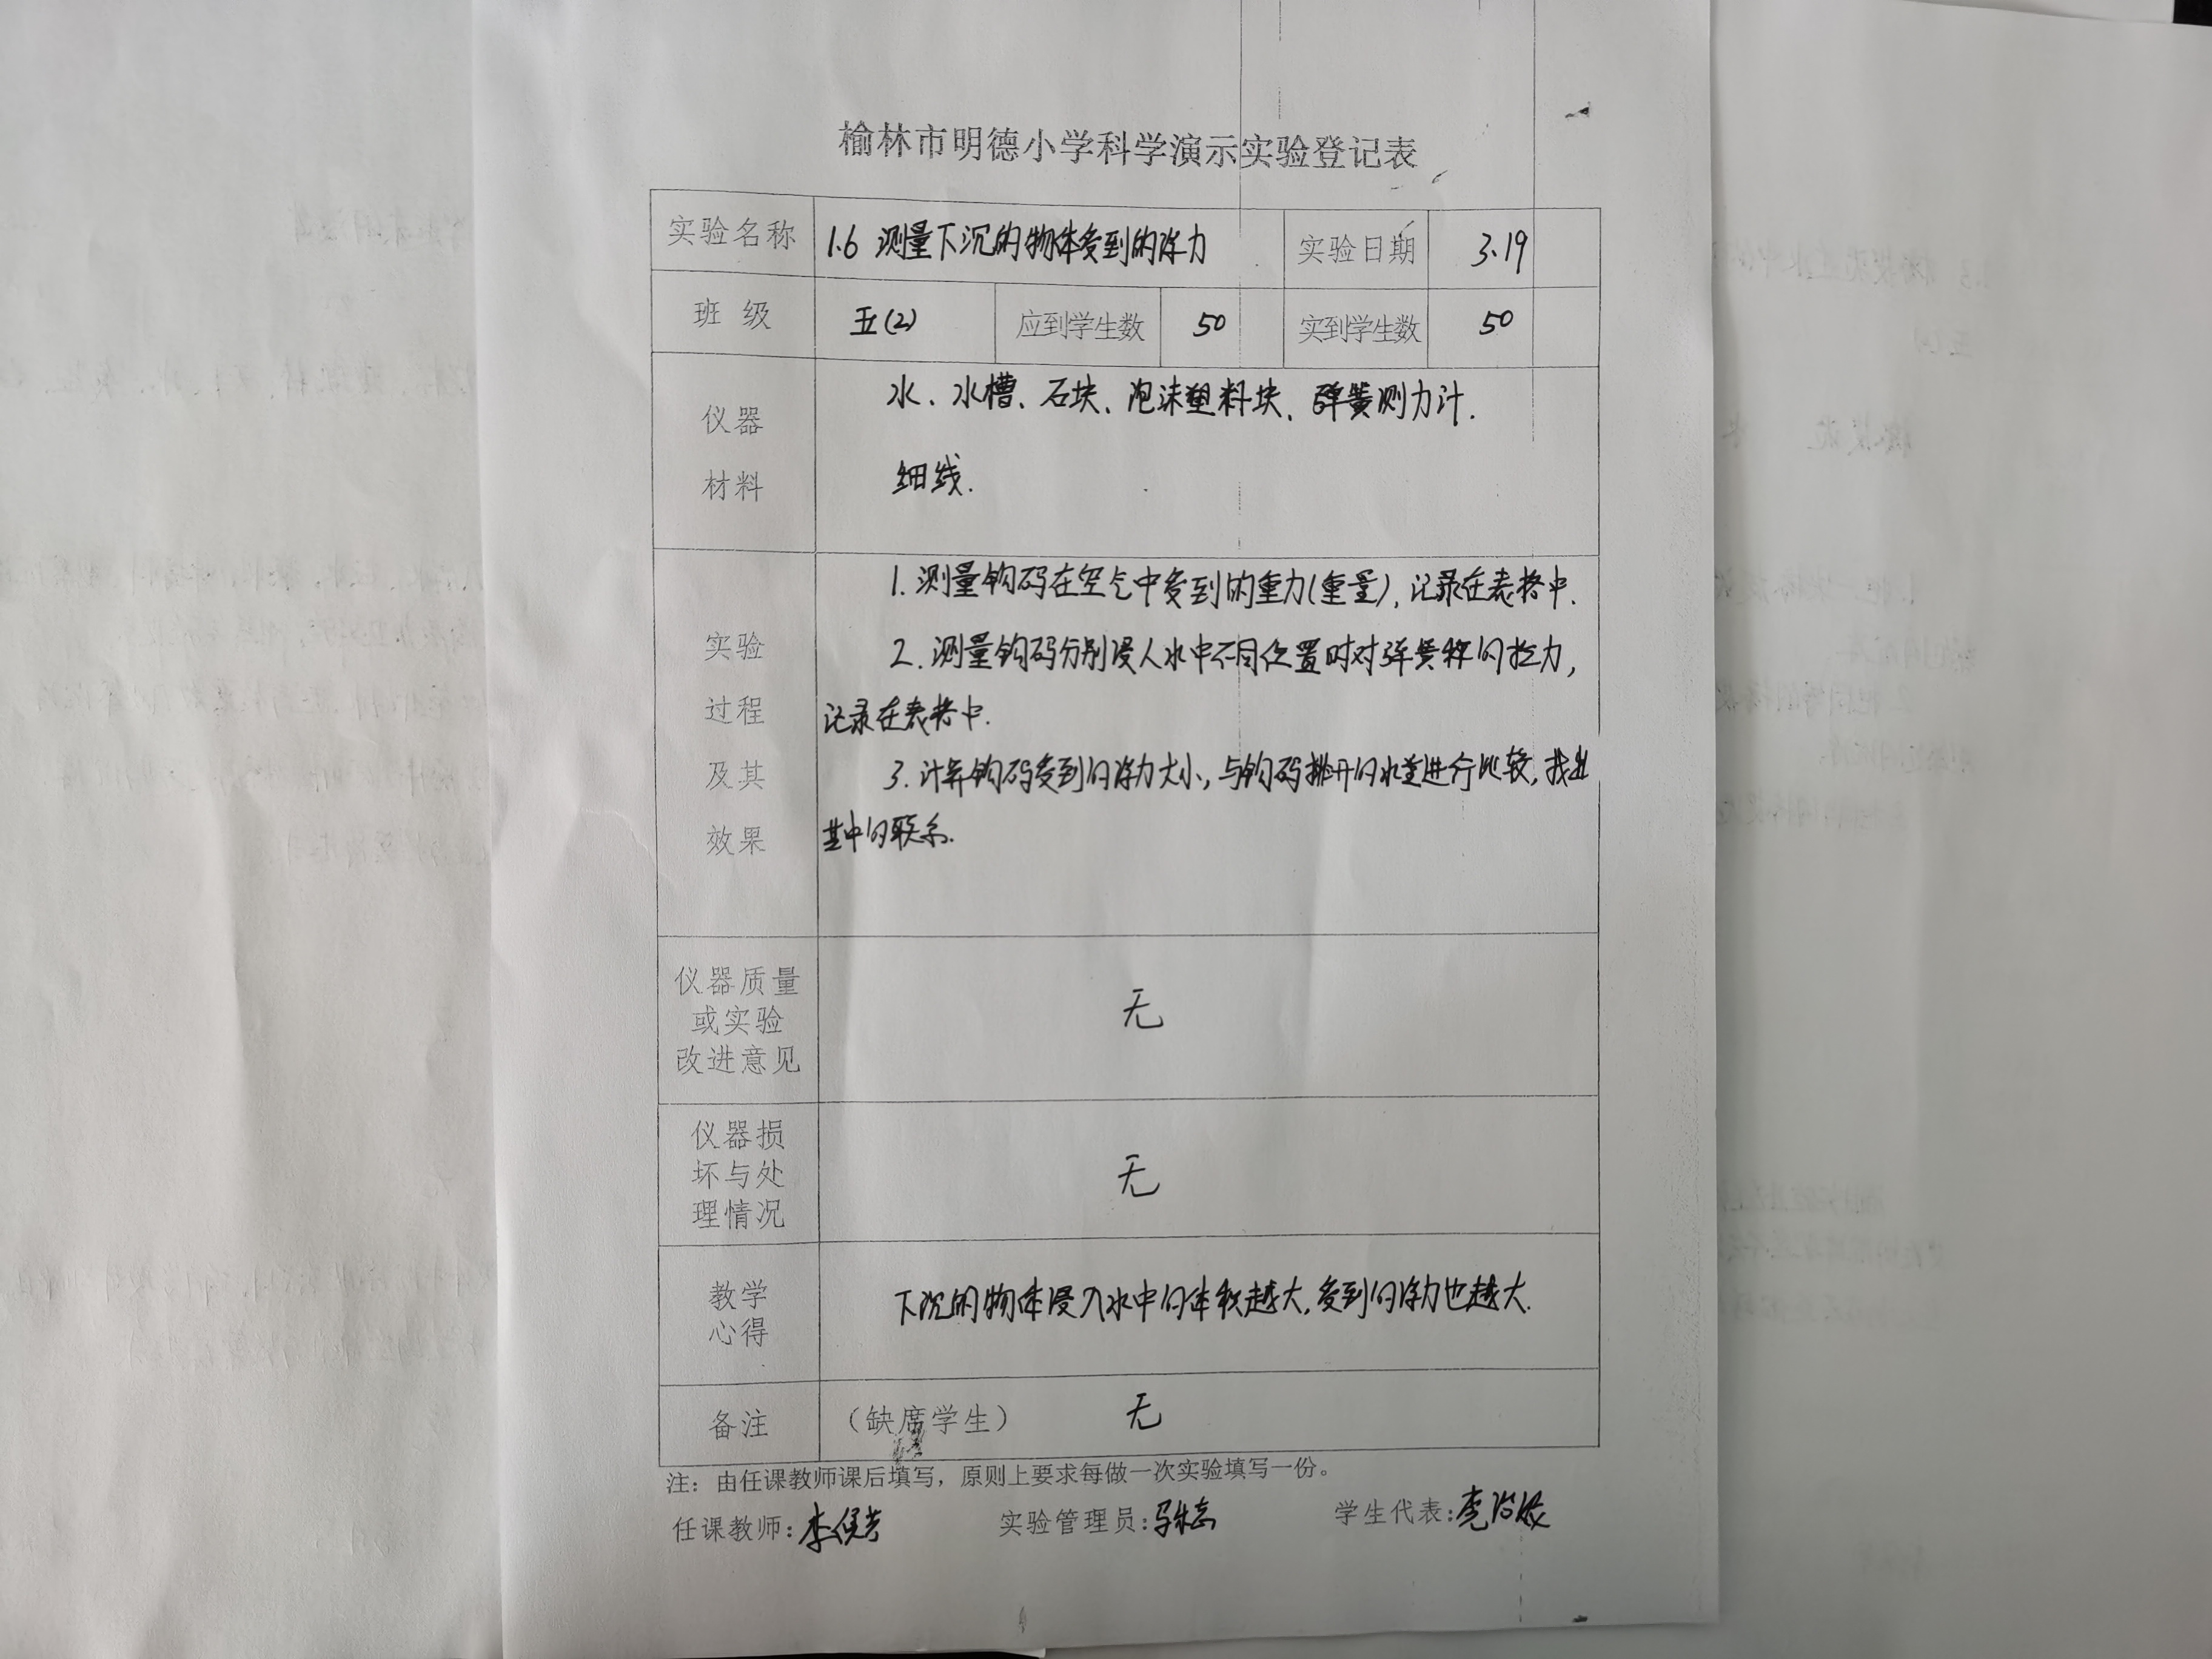 榆林市明德小学科学演示实验登记表
实验名称 1.6 测量下沉的物体受到的浮力 实验日期 3.19
班 级 五(2) 应到学生数 50 实到学生数 50
仪器 水、水槽、石块、泡沫塑料块、弹簧测力计.
材料 细线.
1.测量钩码在空气中受到的重力(重量),记录在表格中.
实验 2.测量钩码分别浸入水中不同位置时对弹簧秤的拉力,
过程 记录在表格中.
及其 3.计算钩码受到的浮力大小,与钩码排开的水量进行比较,找出
效果 其中的联系.
仪器质量
或实验 无
改进意见
仪器损
坏与处 无
理情况
教学 下沉的物体浸入水中的体积越大,受到的浮力也越大.
心得
备注 （缺席学生） 无
注：由任课教师课后填写，原则上要求每做一次实验填写一份。
任课教师: 实验管理员: 学生代表: